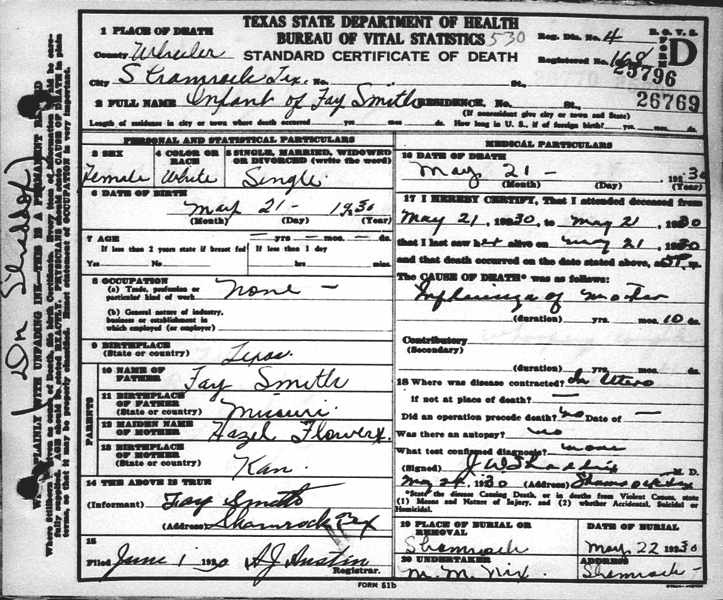 TEXAS STATE DEPARTMENT OF HEALTH
BUREAU OF VITAL STATISTICS 530
STANDARD CERTIFICATE OF DEATH
Reg. Dis. No. 4 B. O. V. S.
FORM D
Registered No. 168
25796
26769
1 PLACE OF DEATH
County Wheeler
City Shamrock Tex. No. St.,
2 FULL NAME Infant of Fay Smith RESIDENCE, No. St.,
(If nonresident give city or town and State)
Length of residence in city or town where death occurred yrs. mos. ds. How long in U. S., if of foreign birth? yrs. mos. ds.
PERSONAL AND STATISTICAL PARTICULARS
3 SEX
Female
4 COLOR OR RACE
White
5 SINGLE, MARRIED, WIDOWED OR DIVORCED (write the word)
Single
6 DATE OF BIRTH
May 21 - 1930
(Month) (Day) (Year)
7 AGE — yrs — mos. — ds.
If less than 2 years state if breast fed If less than 1 day
Yes No hrs. min.
8 OCCUPATION
(a) Trade, profession or particular kind of work None -
(b) General nature of industry, business or establishment in which employed (or employer)
9 BIRTHPLACE
(State or country) Texas
PARENTS
10 NAME OF FATHER Fay Smith
11 BIRTHPLACE OF FATHER
(State or country) Missouri
12 MAIDEN NAME OF MOTHER Hazel Flowers
13 BIRTHPLACE OF MOTHER
(State or country) Kan.
14 THE ABOVE IS TRUE
(Informant) Fay Smith
(Address) Shamrock Tex
15
Filed June 1 1930 A J Austin
Registrar.
MEDICAL PARTICULARS
16 DATE OF DEATH
May 21 - 1930
(Month) (Day) (Year)
17 I HEREBY CERTIFY, That I attended deceased from
May 21, 1930, to May 21, 1930
that I last saw her alive on May 21, 1930
and that death occurred on the date stated above, at 5P m.
The CAUSE OF DEATH* was as follows:
Influenza of Mother
(duration) yrs. mos. 10 ds.
Contributory
(Secondary)
(duration) yrs. mos. ds.
18 Where was disease contracted? In Utero
if not at place of death? —
Did an operation precede death? no Date of —
Was there an autopsy? no
What test confirmed diagnosis? none
(Signed) J W Shaddix M. D.
May 1930 (Address) Shamrock Tex
*State the disease Causing Death, or in deaths from Violent Causes, state (1) Means and Nature of Injury, and (2) whether Accidental, Suicidal or Homicidal.
19 PLACE OF BURIAL OR REMOVAL
Shamrock
DATE OF BURIAL
May 22 1930
20 UNDERTAKER
M. M. Nix.
ADDRESS
Shamrock
FORM 51b